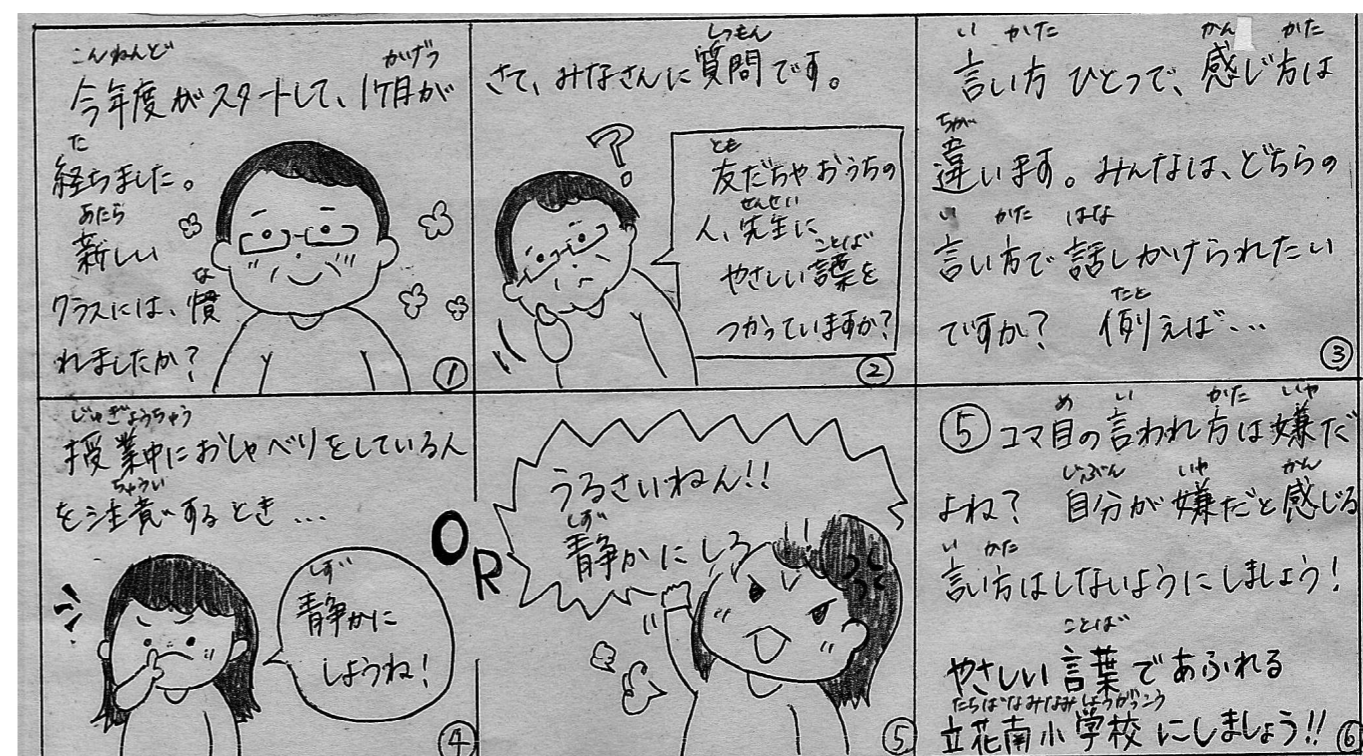 こんねんど かげつ
今年度がスタートして、1ケ月が
た
経ちました。
あたら
新しい
な
クラスには、慣
れましたか？
①
しつもん
さて、みなさんに質問です。
？
とも
友だちやおうちの
せんせい
人、先生に
ことば
やさしい言葉を
つかっていますか？
②
い かた かん かた
言い方ひとつで、感じ方は
ちが
違います。みんなは、どちらの
い かた はな
言い方で話しかけられたい
たと
ですか？ 例えば…
③
じゅぎょうちゅう
授業中におしゃべりをしている人
ちゅうい
を注意するとき…
しず
静かに
しようね！
④
OR
うるさいねん!!
しず
静かにしろ
⑤
め い かた いや
⑤コマ目の言われ方は嫌だ
じぶん いや かん
よね？ 自分が嫌だと感じる
い かた
言い方はしないようにしましょう！
ことば
やさしい言葉であふれる
たちばなみなみしょうがっこう
立花南小学校にしましょう!!
⑥